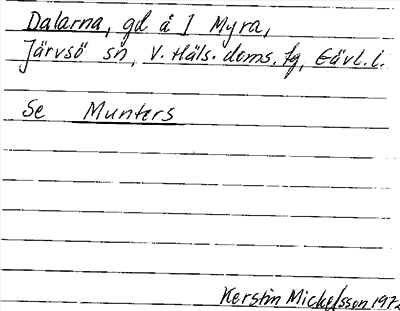 Dalarna, gd å 1 Myra,
Järvsö sn, V. Häls. doms. fg, Gävl. l.
Se Munters
Kerstin Mickelsson 197